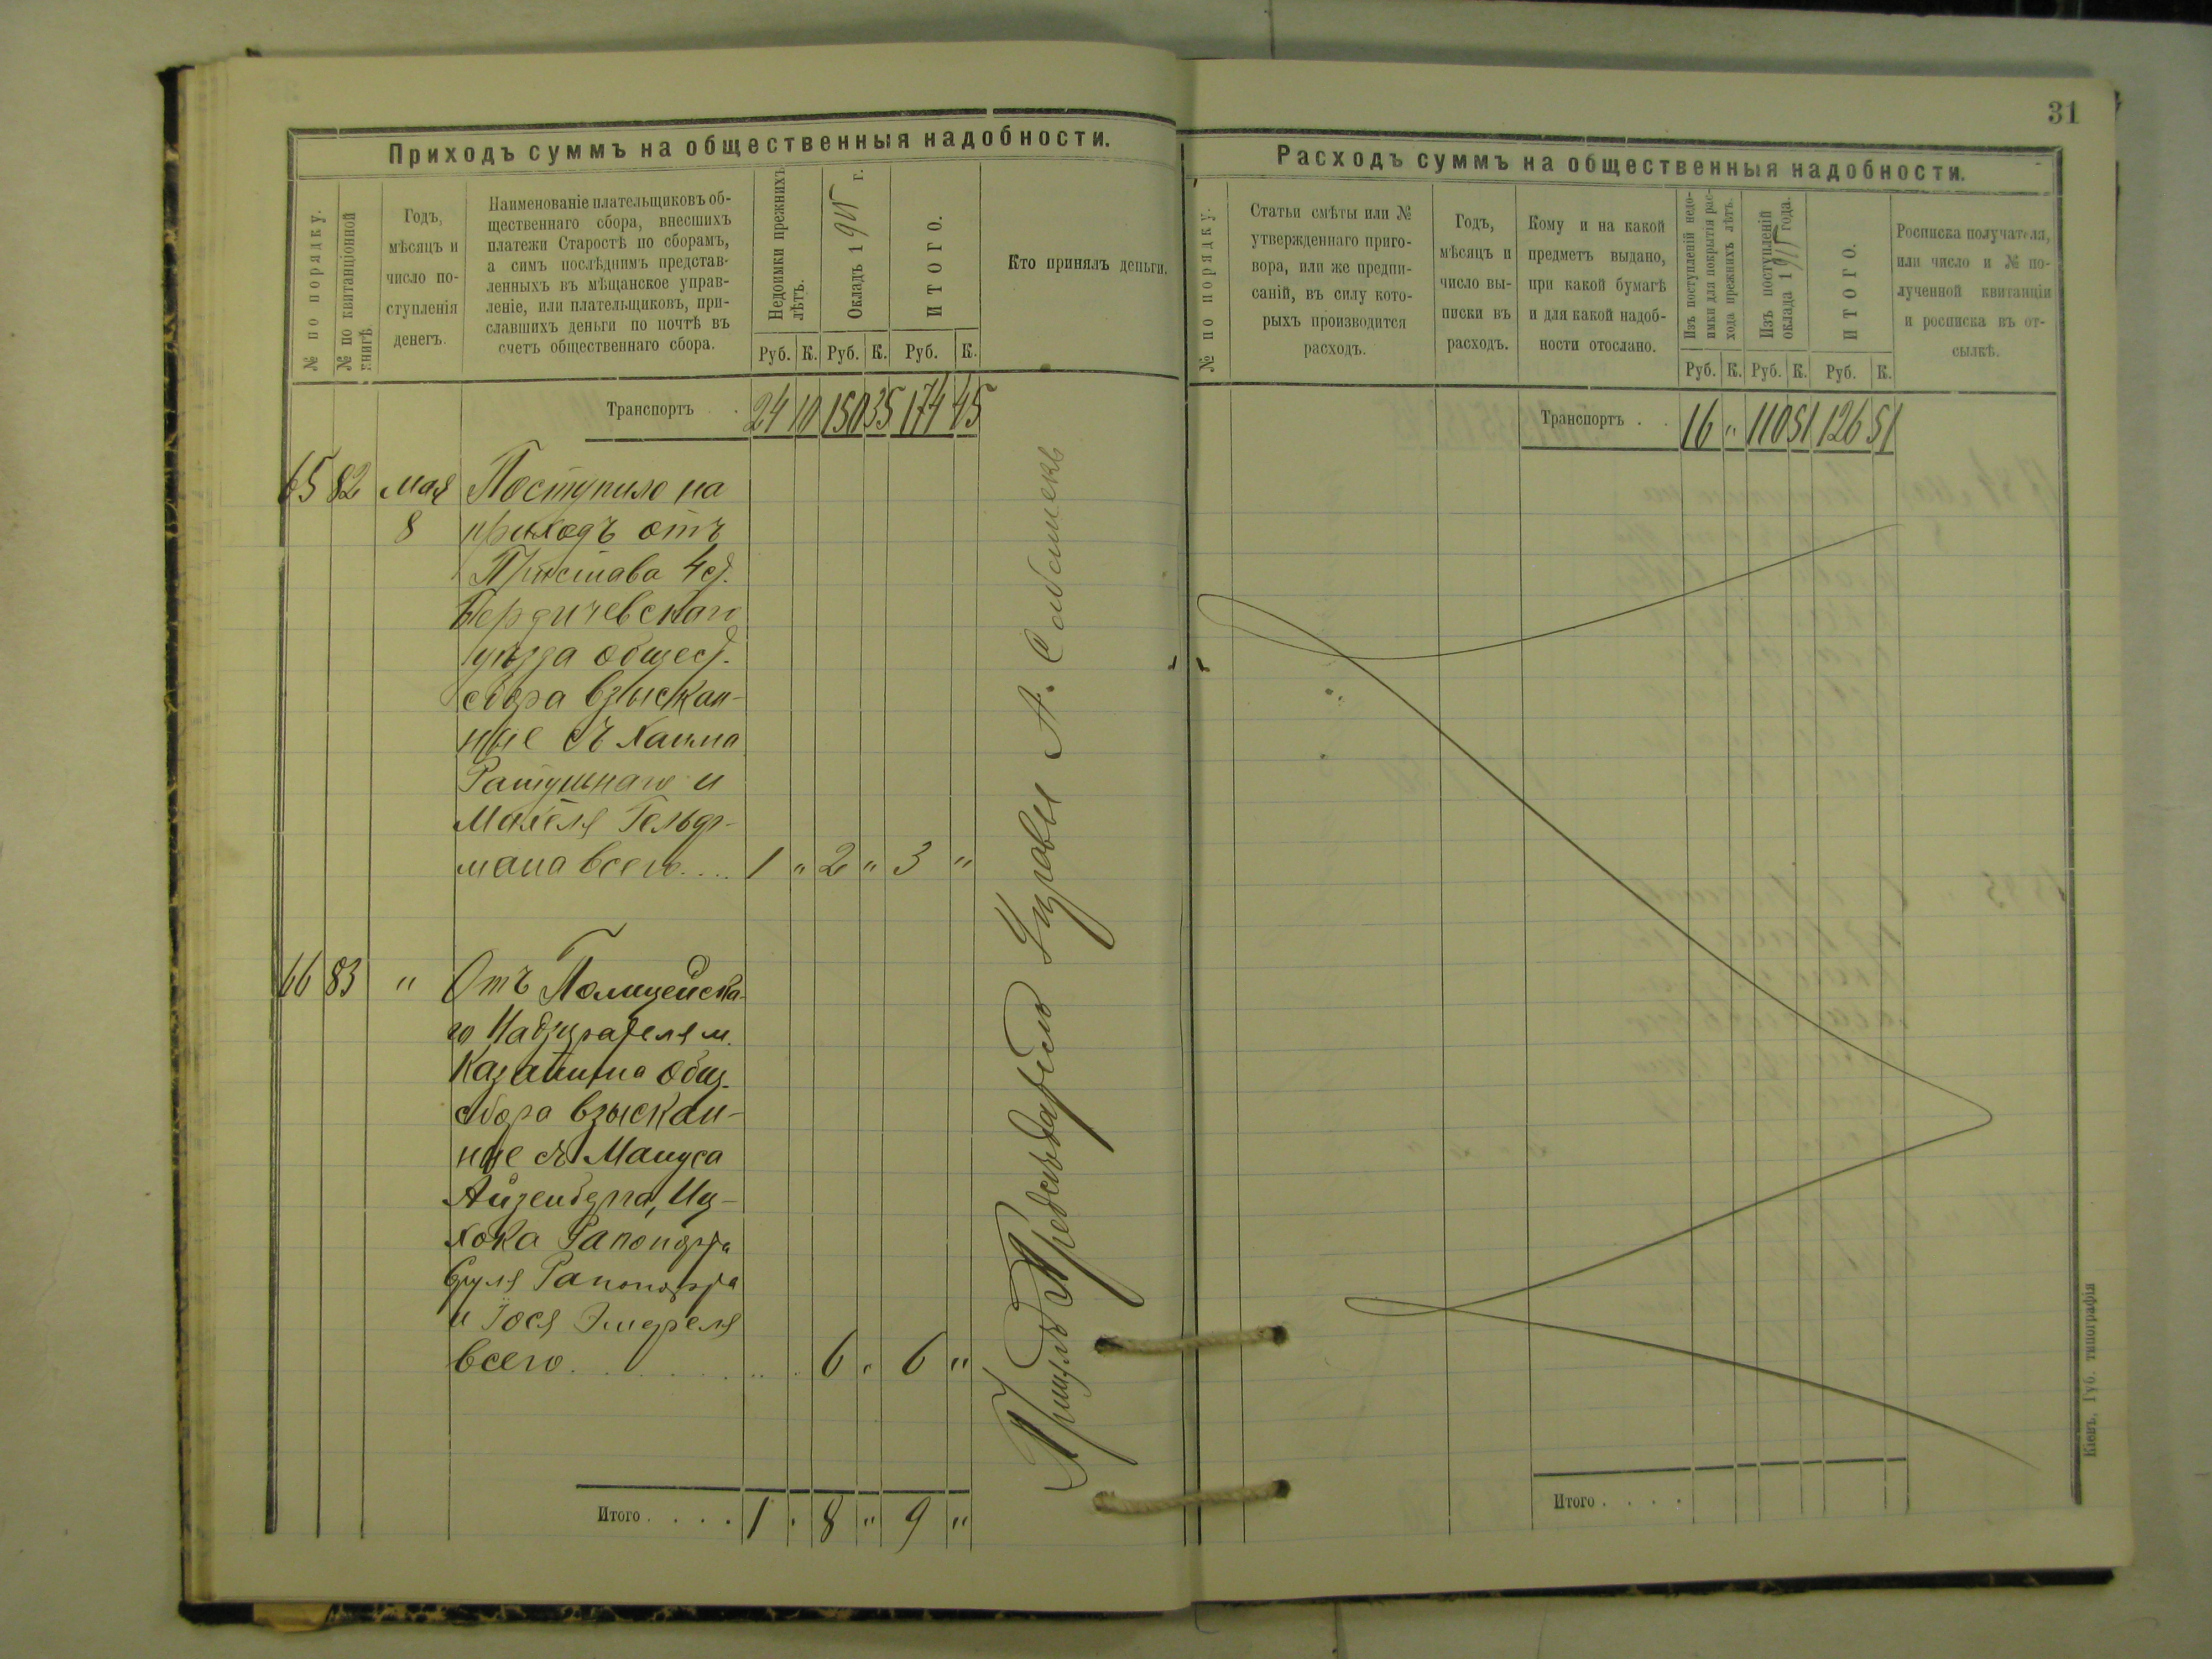 31
Приходъ суммъ на общественныя надобности.
№ по порядку.
№ по квитанціонной
книгѣ.
Годъ,
мѣсяцъ и
число по-
ступленія
денегъ.
Наименованіе плательщиковъ об-
щественнаго сбора, внесшихъ
платежи Старостѣ по сборамъ,
а симъ послѣднимъ представ-
ленныхъ въ мѣщанское управ-
леніе, или плательщиковъ, при-
славшихъ деньги по почтѣ въ
счетъ общественнаго сбора.
Недоимки прежнихъ
лѣтъ.
Окладъ 1915 г.
ИТОГО.
Кто принялъ деньги.
Руб. К. Руб. К. Руб. К.
Транспортъ . . 24 10 150 35 174 45
65 82 мая Поступило на
8 приходъ отъ
Пристава 4 ст.
Бердичевскаго
уѣзда общест.
сбора взыскан-
ные съ Хаима
Ратушнаго и
Мошеля Гельд-
мана всего.... 1 " 2 " 3 "
66 83 " Отъ Полицейска-
го Надзирателя м.
Казатина общ.
сбора взыскан-
ные съ Мануса
Айзенберга, Иц-
хока Рапопорта
Сруля Рапопорта
и Іося
всего . . . . . . . . . 6 " 6 "
Итого . . . . 1 " 8 " 9 "
Расходъ суммъ на общественныя надобности.
№ по порядку.
Статьи смѣты или №
утвержденнаго приго-
вора, или же предпи-
саній, въ силу кото-
рыхъ производится
расходъ.
Годъ,
мѣсяцъ и
число вы-
писки въ
расходъ.
Кому и на какой
предметъ выдано,
при какой бумагѣ
и для какой надоб-
ности отослано.
Изъ поступленій недо-
имки для покрытія рас-
хода прежнихъ лѣтъ.
Изъ поступленій
оклада 1915 года.
ИТОГО.
Росписка получателя,
или число и № по-
лученной квитанціи
и росписка въ от-
сылкѣ.
Руб. К. Руб. К. Руб. К.
Транспортъ . . 16 " 110 51 126 51
Итого . . . .
Кіевъ, Губ. типографія